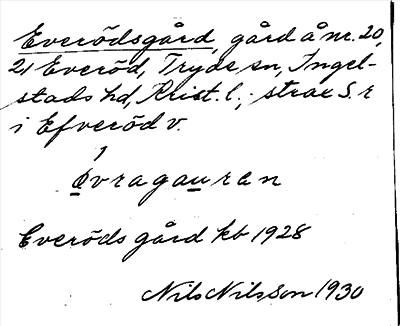 Everödsgård, gård å nr. 20,
21 Everöd, Tryde sn, Ingel-
stads hd, Krist. l.; strax S. r
i Efveröd v.
øvragauran
Everöds gård kb 1928
Nils Nilsson 1930